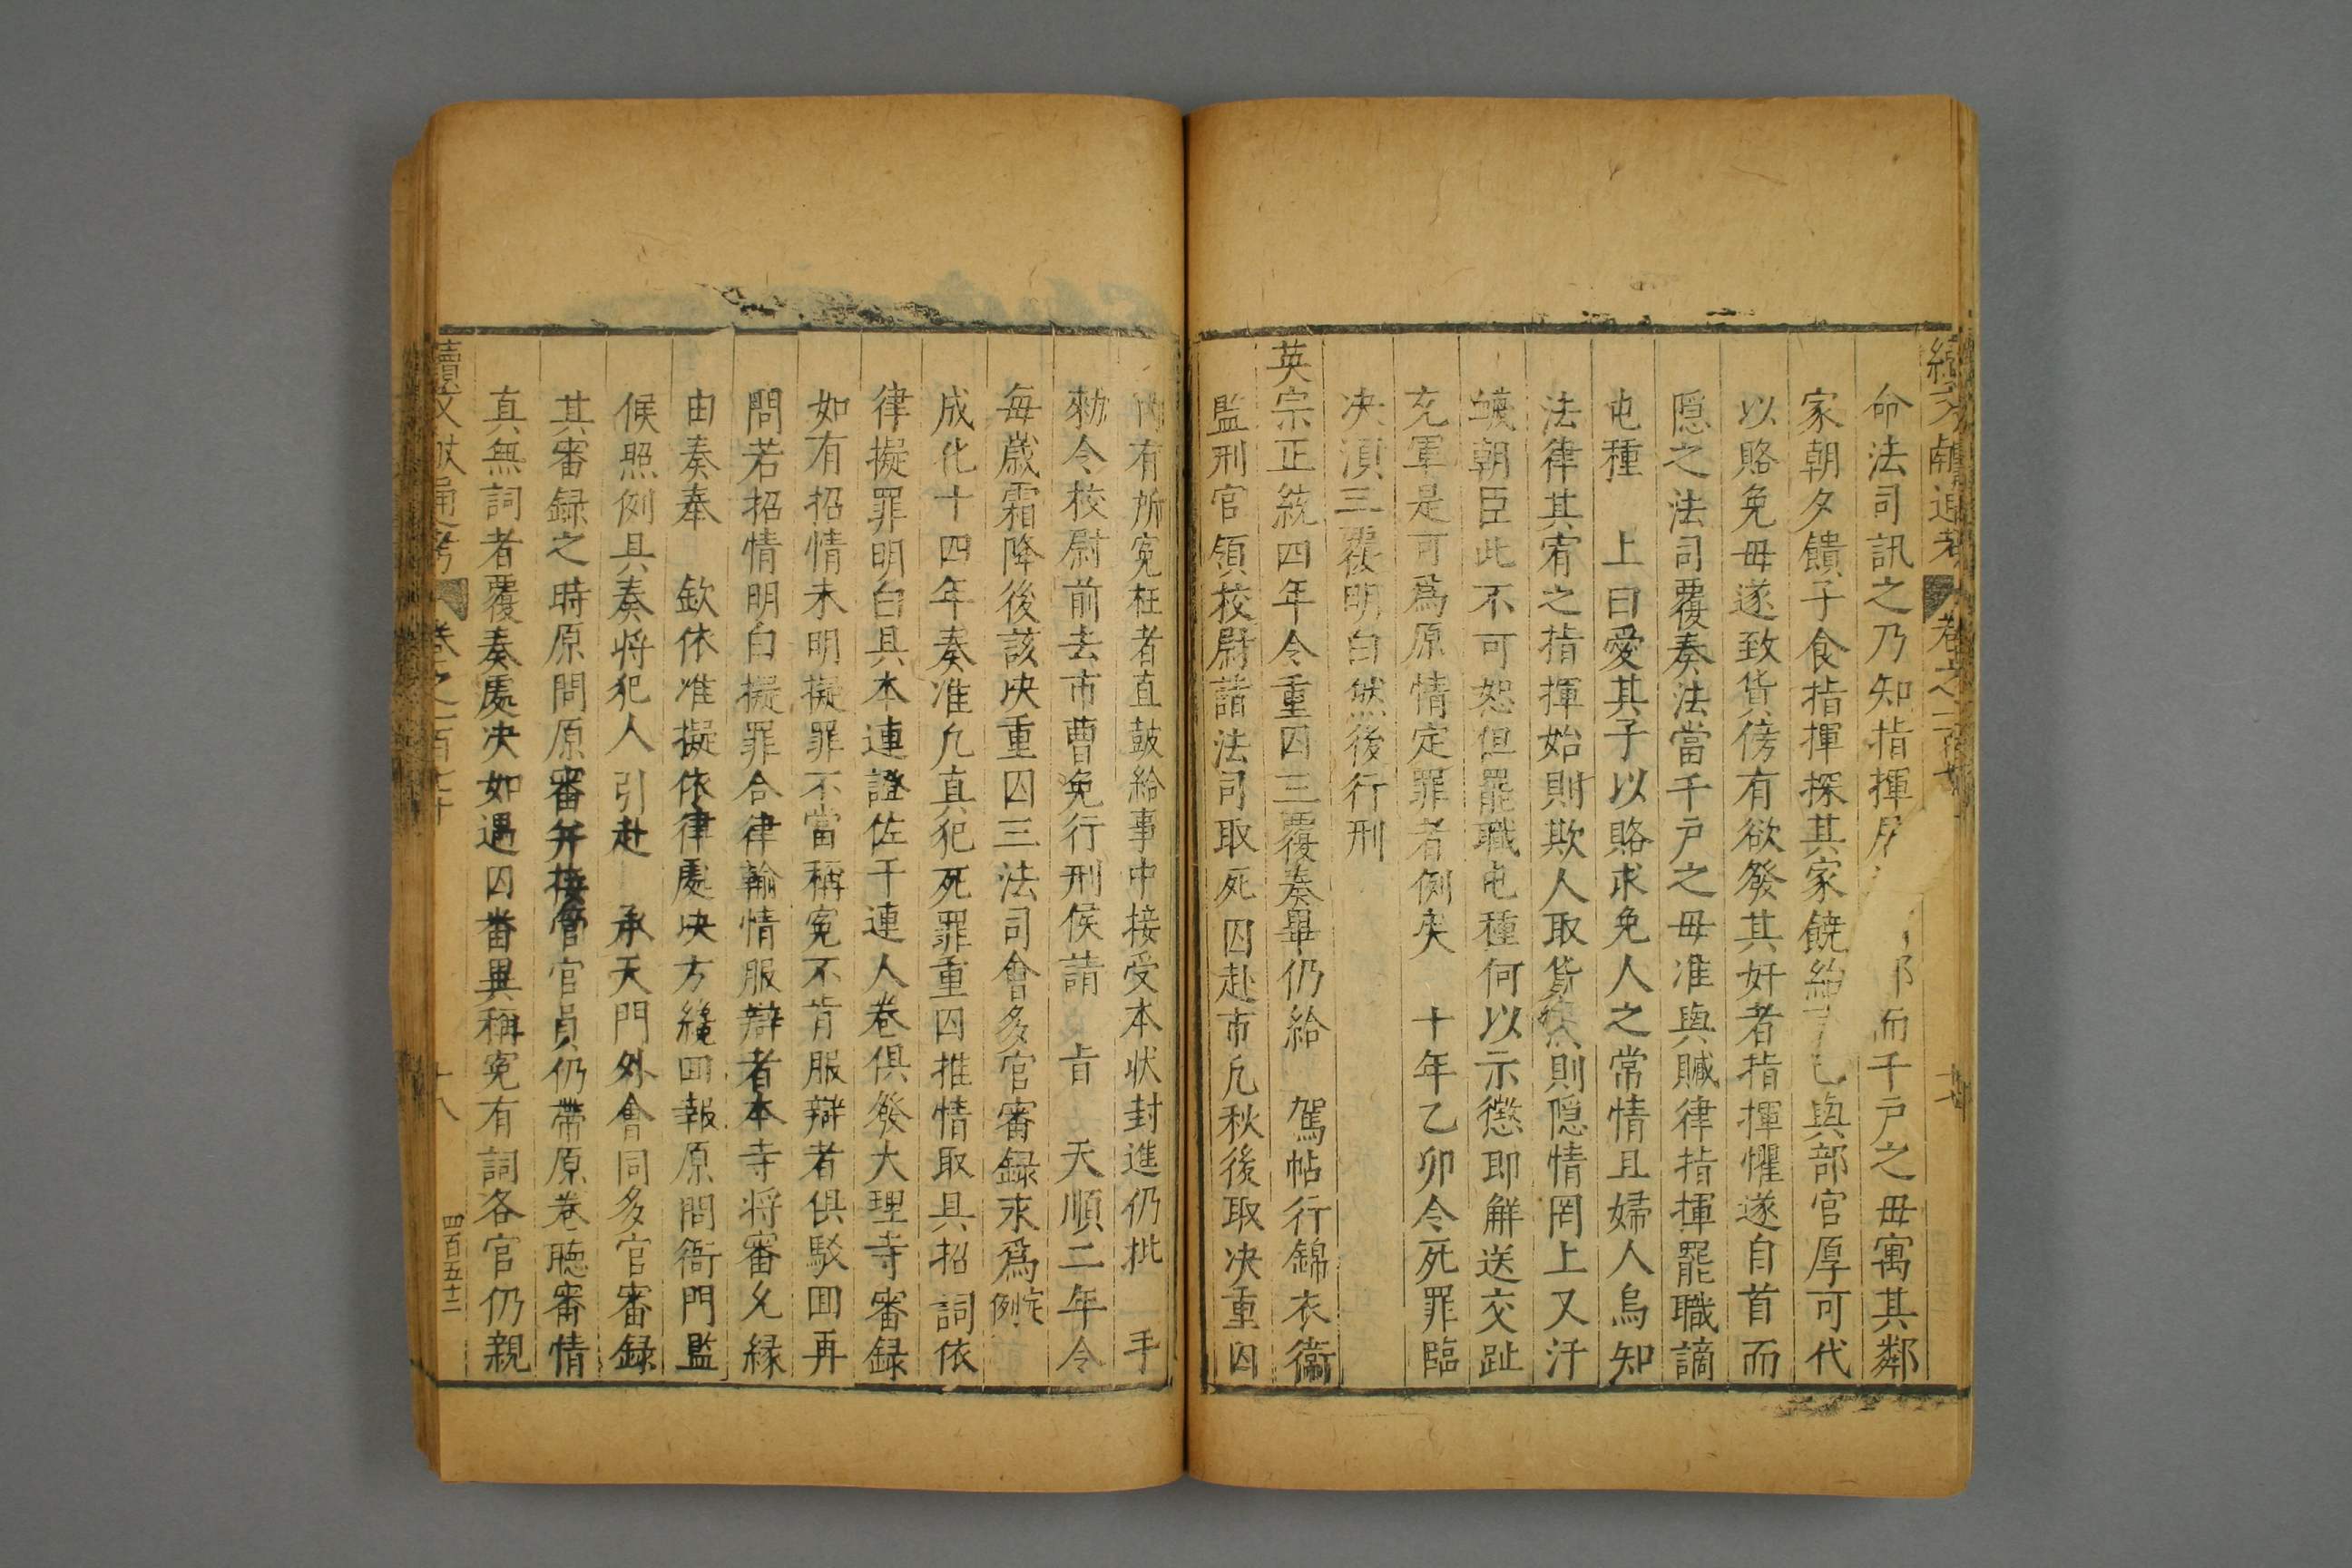 命法司訊之乃知指揮而千戸之毋寓其鄰
家朝夕饋子食指揮探其家饒與部官厚可代
以賂免毋遂致貨傍有欲發其奸者指揮懼遂自首而
隠之法司覆奏法當千戸之毋准與贓律指揮罷職謫
屯種　上曰愛其子以賂求免人之常情且婦人烏知
法律其宥之指揮始則欺人取貨則隠情罔上又汙
衊朝臣此不可恕但罷職屯種何以示懲即解送交趾
充軍是可爲原情定罪者例矣　十年乙卯令死罪臨
决湏三覆明白然後行刑
英宗正統四年令重囚三覆奏畢仍給　駕帖行錦衣衞
監刑官領校尉詣法司取死囚赴市凡秋後取决重囚
内有所寃枉者直鼓給事中接受本状封進仍批　手
勑令校尉前去市曹免行刑候請　㫖　天順二年令
每歳霜降後該决重囚三法司會多官審録永爲定例
成化十四年奏准凡真犯死罪重囚推情取具招詞依
律擬罪明白具本連證佐干連人巻俱發大理寺審録
如有招情未明擬罪不當稱寃不肯服辯者俱駁回再
問若招情明白擬罪合律輸情服辯者本寺將審允縁
由奏奉　欽依准擬依律處决方纔回報原問衙門監
候照例具奏將犯人引赴　承天門外會同多官審録
其審録之時原問原審并接管官員仍帶原巻聴審情
真無詞者覆奏處决如遇囚番異稱寃有詞各官仍親
續文献通考　巻之一百七十
十八
四百五十二